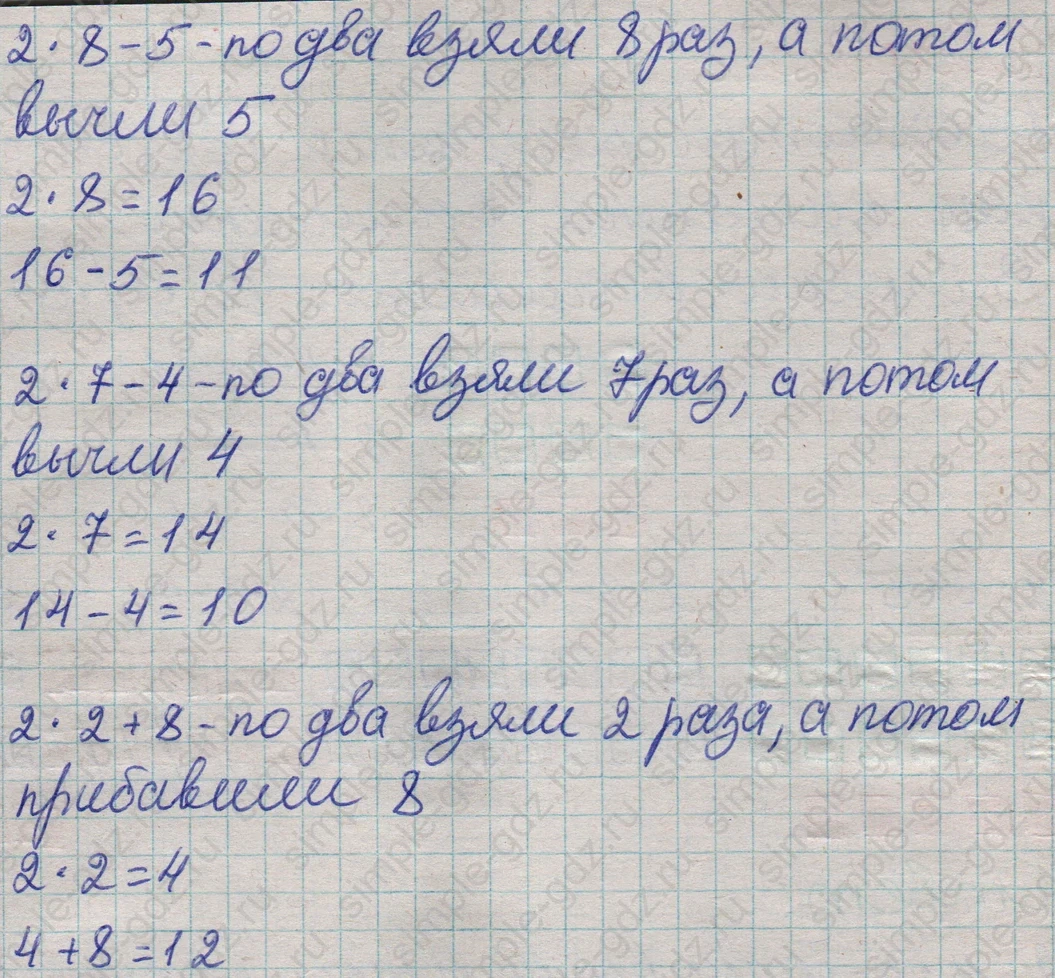 2·8-5-по два взяли 8 раз, а потом
вычли 5
2·8=16
16-5=11
2·7-4-по два взяли 7 раз, а потом
вычли 4
2·7=14
14-4=10
2·2+8-по два взяли 2 раза, а потом
прибавили 8
2·2=4
4+8=12
simple-gdz.ru